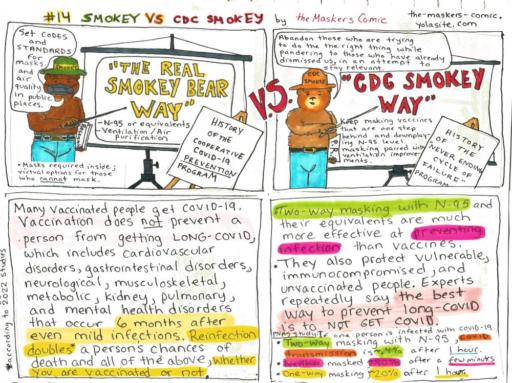 #14 SMOKEY VS CDC SMOKEY by the Maskers Comic
the-maskers-comic.
yolasite.com
Set CODES
and
STANDARDS
for
masks
and air
quality
in public
places.
"THE REAL
SMOKEY BEAR
WAY"
-N-95 or equivalents
-Ventilation/Air
purification
HISTORY
OF THE
COOPERATIVE
COVID-19
PREVENTION
PROGRAM
• Masks required inside;
virtual options for those
who cannot mask.
V.S.
Abandon those who are trying
to do the right thing while
pandering to those who have already
dismissed us, in an attempt to
stay relevant.
CDC
SMOKEY
"CDC SMOKEY
WAY"
Keep making vaccines
that are one step
behind and downplay-
ing N-95 level
masking paired with
ventilation improve-
ments.
HISTORY
OF THE
"NEVER ENDING
CYCLE OF
FAILURE"
PROGRAM
Many vaccinated people get COVID-19.
Vaccination does not prevent a
person from getting LONG-COVID,
which includes cardiovascular
disorders, gastrointestinal disorders,
neurological, musculoskeletal,
metabolic, kidney, pulmonary,
and mental health disorders
that occur 6 months after
even mild infections. Reinfection
doubles a person's chances of
death and all of the above, whether
you are vaccinated or not.
*according to 2022 studies
•Two-way masking with N-95 and
their equivalents are much
more effective at preventing
infection than vaccines.
• They also protect vulnerable,
immunocompromised, and
unvaccinated people. Experts
repeatedly say the best
way to prevent long-COVID
is to NOT GET COVID.
study: one person is infected with covid-19.
• Two-way masking with N-95, covid
transmission is after 1 hour.
masked after a few minutes
• One-way masking 20% after 1 hour